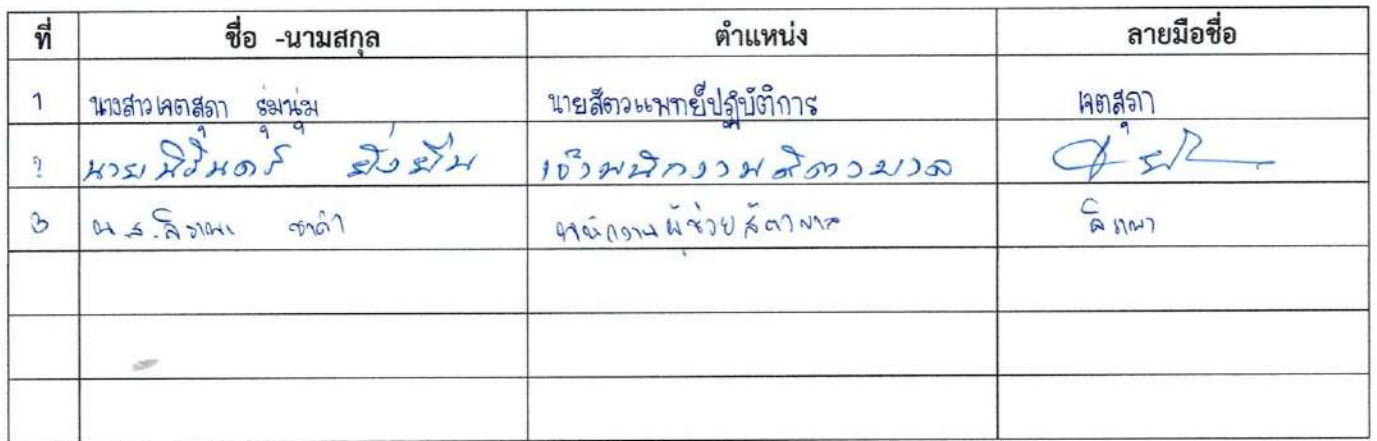 ที่ ชื่อ -นามสกุล ตำแหน่ง ลายมือชื่อ
1 นางสาวเจตสุภา รุ่มนุ่ม นายสัตวแพทย์ปฏิบัติการ เจตสุภา
2 นาย ยั่งยืน เจ้าพนักงานสัตวบาล
3 น.ส. พนักงานผู้ช่วยสัตวบาล